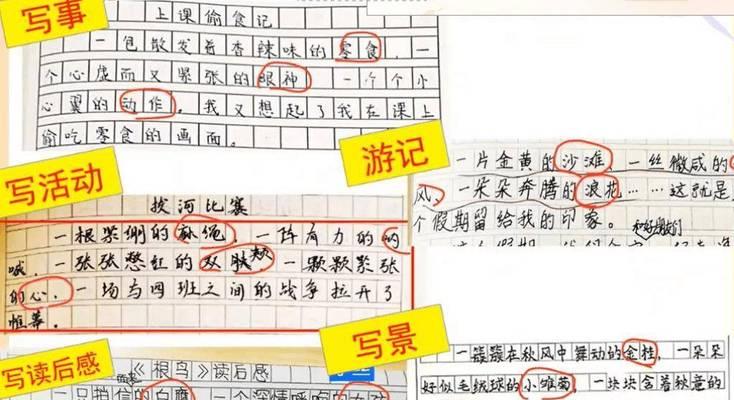 写事
上课偷食记
一包散发着香辣味的零食，一
个心虚而又紧张的眼神 一个个小
心翼的动作。我又想起了我在课上
偷吃零食的画面。
写活动
拔河比赛
一根紧绷的麻绳，一阵有力的呐
喊，一张张憋红的双颊，一颗颗紧张
的心，一场与四班之间的战争拉开了
帷幕。
写读后感
《根鸟》读后感
一只报信的白鹰 一个深情呼唤的女孩
游记
一片金黄的沙滩，一丝微咸的
风，一朵朵奔腾的浪花……这就是
个假期留给我的印象。
写景
一簇簇在秋风中舞动的金桂，一朵朵
好似毛绒球的小雏菊，一块块含着秋意的